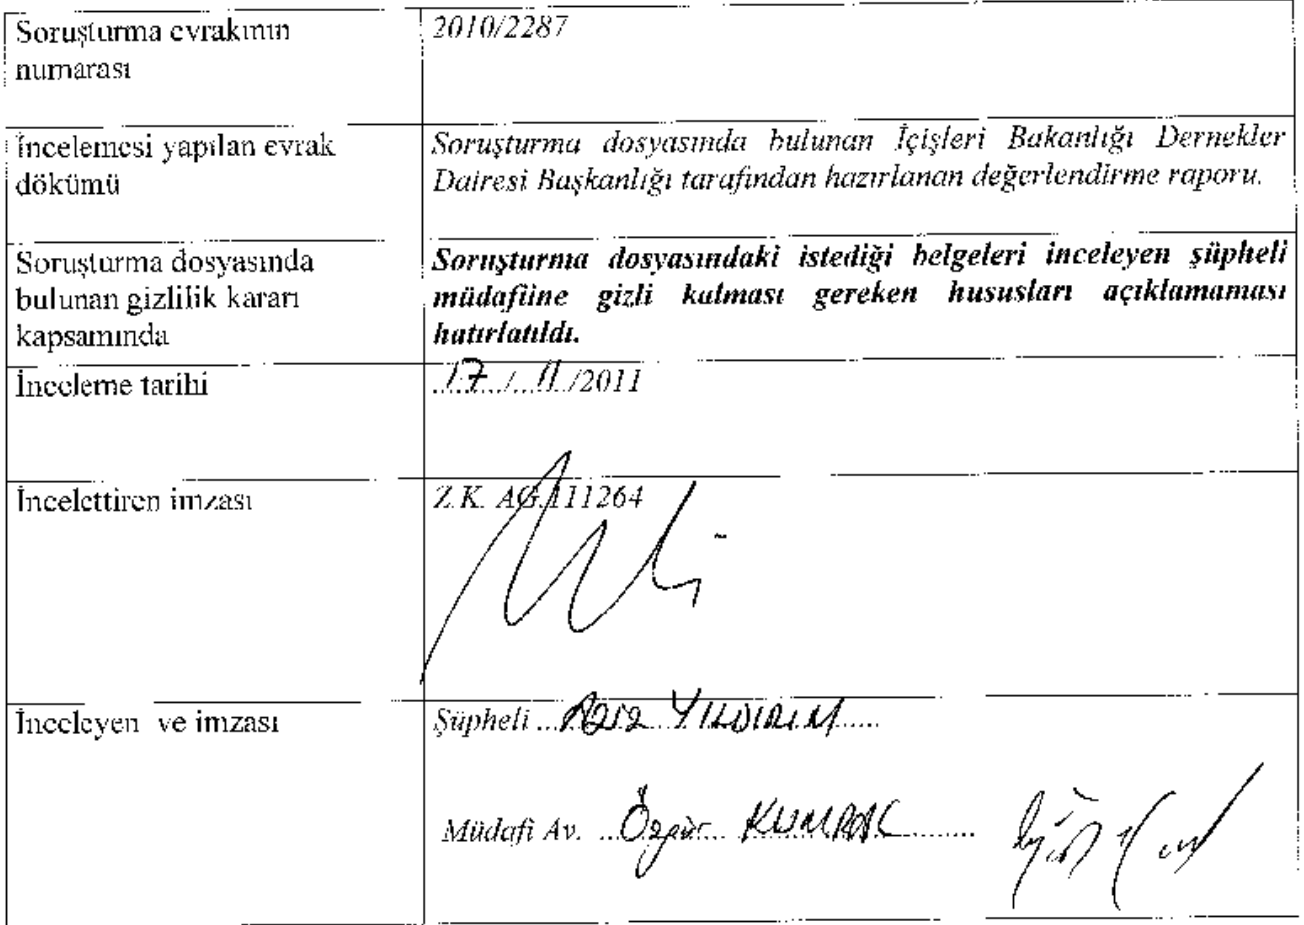 Soruşturma evrakının
numarası
2010/2287
İncelemesi yapılan evrak
dökümü
Soruşturma dosyasında bulunan İçişleri Bakanlığı Dernekler
Dairesi Başkanlığı tarafından hazırlanan değerlendirme raporu.
Soruşturma dosyasında
bulunan gizlilik kararı
kapsamında
Soruşturma dosyasındaki istediği belgeleri inceleyen şüpheli
müdafiine gizli kalması gereken hususları açıklamaması
hatırlatıldı.
İnceleme tarihi
17/11/2011
İncelettiren imzası
Z.K. AG.111264
İnceleyen ve imzası
Şüpheli ... Aziz YILDIRIM ......
Müdafi Av. ... Özgür